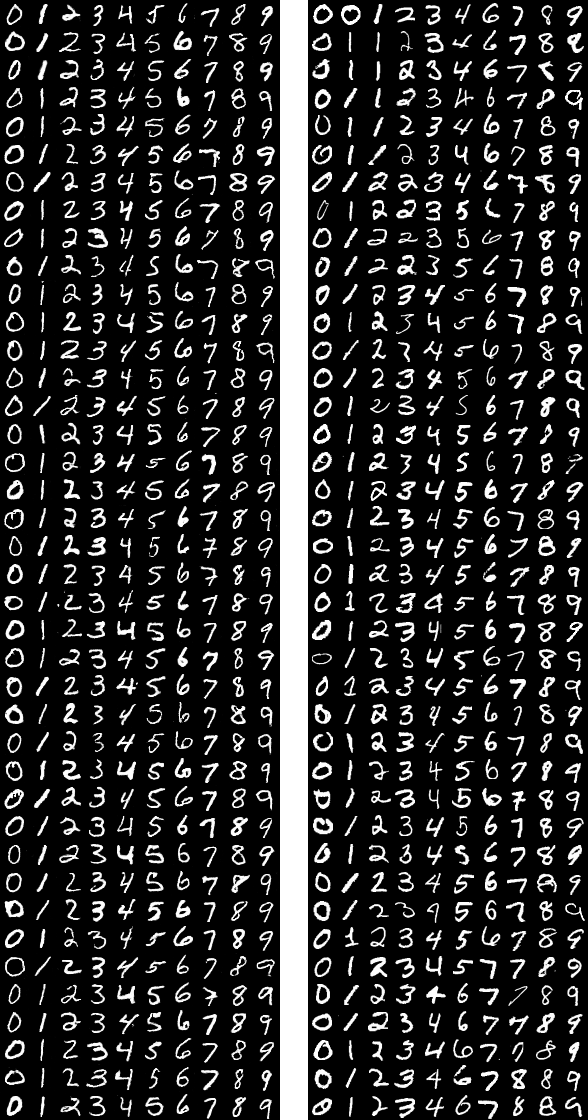 0 1 2 3 4 5 6 7 8 9 0 0 1 2 3 4 6 7 8 9
0 1 2 3 4 5 6 7 8 9 0 1 1 2 3 4 6 7 8 8
0 1 2 3 4 5 6 7 8 9 0 1 1 2 3 4 6 7 8 9
0 1 2 3 4 5 6 7 8 9 0 1 1 2 3 4 6 7 8 9
0 1 2 3 4 5 6 7 8 9 0 1 1 2 3 4 6 7 8 9
0 1 2 3 4 5 6 7 8 9 0 1 1 2 3 4 6 7 8 9
0 1 2 3 4 5 6 7 8 9 0 1 2 2 3 4 6 7 8 9
0 1 2 3 4 5 6 7 8 9 0 1 2 2 3 5 6 7 8 9
0 1 2 3 4 5 6 7 8 9 0 1 2 2 3 5 6 7 8 9
0 1 2 3 4 5 6 7 8 9 0 1 2 2 3 5 6 7 8 9
0 1 2 3 4 5 6 7 8 9 0 1 2 3 4 5 6 7 8 9
0 1 2 3 4 5 6 7 8 9 0 1 2 3 4 5 6 7 8 9
0 1 2 3 4 5 6 7 8 9 0 1 2 3 4 5 6 7 8 9
0 1 2 3 4 5 6 7 8 9 0 1 2 3 4 5 6 7 8 9
0 1 2 3 4 5 6 7 8 9 0 1 2 3 4 5 6 7 8 9
0 1 2 3 4 5 6 7 8 9 0 1 2 3 4 5 6 7 8 9
0 1 2 3 4 5 6 7 8 9 0 1 2 3 4 5 6 7 8 9
0 1 2 3 4 5 6 7 8 9 0 1 2 3 4 5 6 7 8 9
0 1 2 3 4 5 6 7 8 9 0 1 2 3 4 5 6 7 8 9
0 1 2 3 4 5 6 7 8 9 0 1 2 3 4 5 6 7 8 9
0 1 2 3 4 5 6 7 8 9 0 1 2 3 4 5 6 7 8 9
0 1 2 3 4 5 6 7 8 9 0 1 2 3 4 5 6 7 8 9
0 1 2 3 4 5 6 7 8 9 0 1 2 3 4 5 6 7 8 9
0 1 2 3 4 5 6 7 8 9 0 1 2 3 4 5 6 7 8 9
0 1 2 3 4 5 6 7 8 9 0 1 2 3 4 5 6 7 8 9
0 1 2 3 4 5 6 7 8 9 0 1 2 3 4 5 6 7 8 9
0 1 2 3 4 5 6 7 8 9 0 1 2 3 4 5 6 7 8 9
0 1 2 3 4 5 6 7 8 9 0 1 2 3 4 5 6 7 8 9
0 1 2 3 4 5 6 7 8 9 0 1 2 3 4 5 6 7 8 9
0 1 2 3 4 5 6 7 8 9 0 1 2 3 4 5 6 7 8 9
0 1 2 3 4 5 6 7 8 9 0 1 2 3 4 5 6 7 8 9
0 1 2 3 4 5 6 7 8 9 0 1 2 3 4 5 6 7 8 9
0 1 2 3 4 5 6 7 8 9 0 1 2 3 4 5 6 7 8 9
0 1 2 3 4 5 6 7 8 9 0 1 2 3 4 5 6 7 8 9
0 1 2 3 4 5 6 7 8 9 0 1 2 3 4 5 7 7 8 9
0 1 2 3 4 5 6 7 8 9 0 1 2 3 4 6 7 7 8 9
0 1 2 3 4 5 6 7 8 9 0 1 2 3 4 6 7 7 8 9
0 1 2 3 4 5 6 7 8 9 0 1 2 3 4 6 7 7 8 9
0 1 2 3 4 5 6 7 8 9 0 1 2 3 4 6 7 8 8 9
0 1 2 3 4 5 6 7 8 9 0 1 2 3 4 6 7 8 8